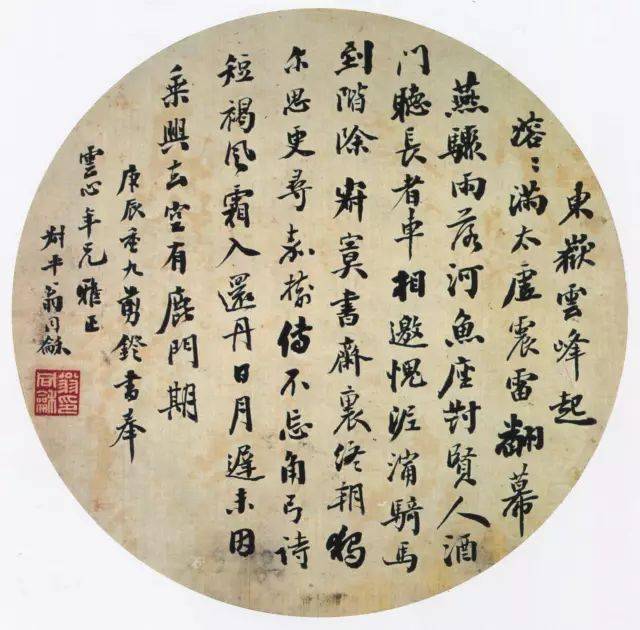 東嶽雲峰起
溶〻滿太虛震雷翻幕
燕驟雨落河魚座對賢人酒
門聽長者車相邀愧泥濘騎馬
到階除寂寞書齋裏終朝獨
尔思更尋嘉樹傳不忘角弓詩
短褐風霜入還丹日月遲未因
乘興去空有鹿門期
庚辰重九剪鐙書奉
雲心年兄雅正
叔平翁同龢
翁同龢印